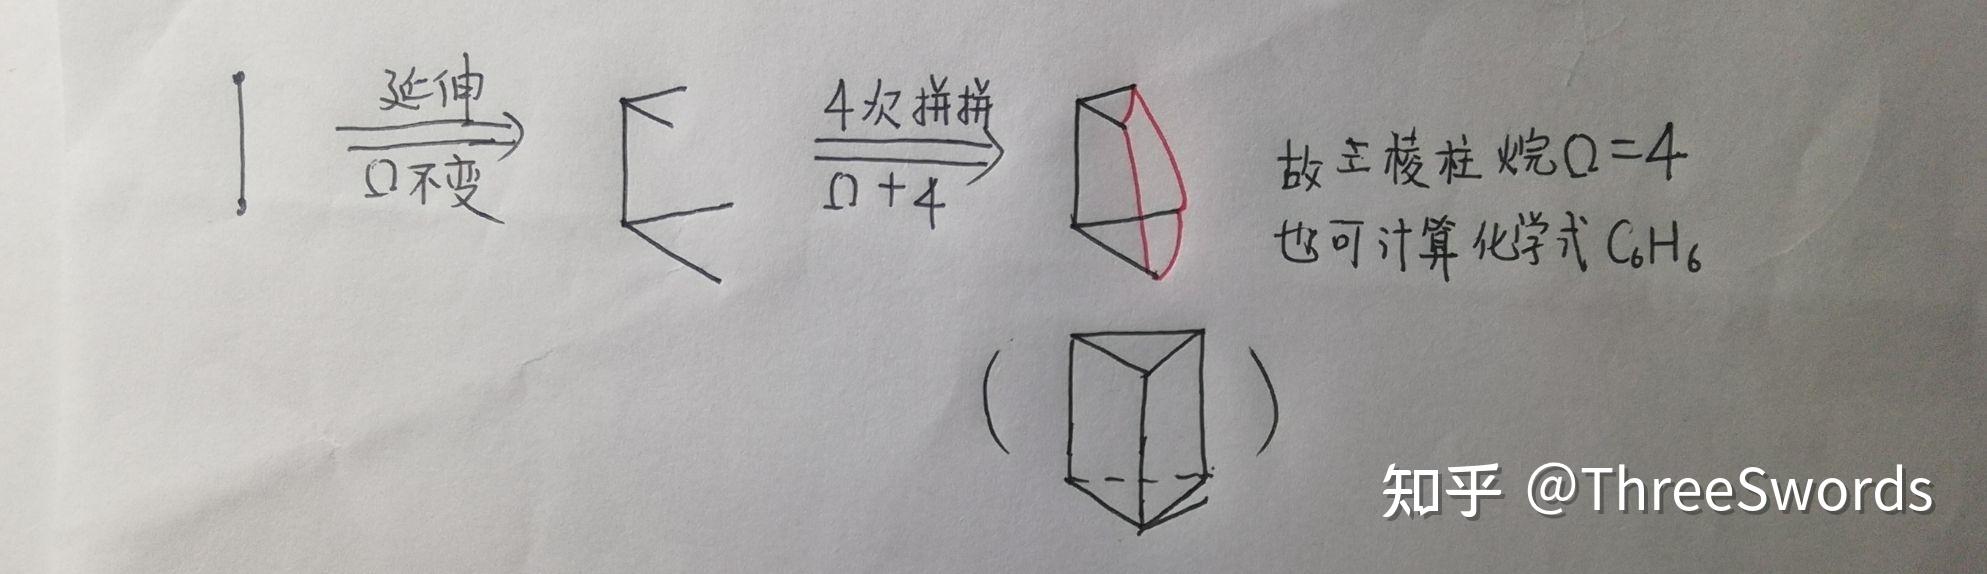 延伸
Ω不变
4次拼拼
Ω+4
故三棱柱烷Ω=4
也可计算化学式C₆H₆
知乎 @ThreeSwords